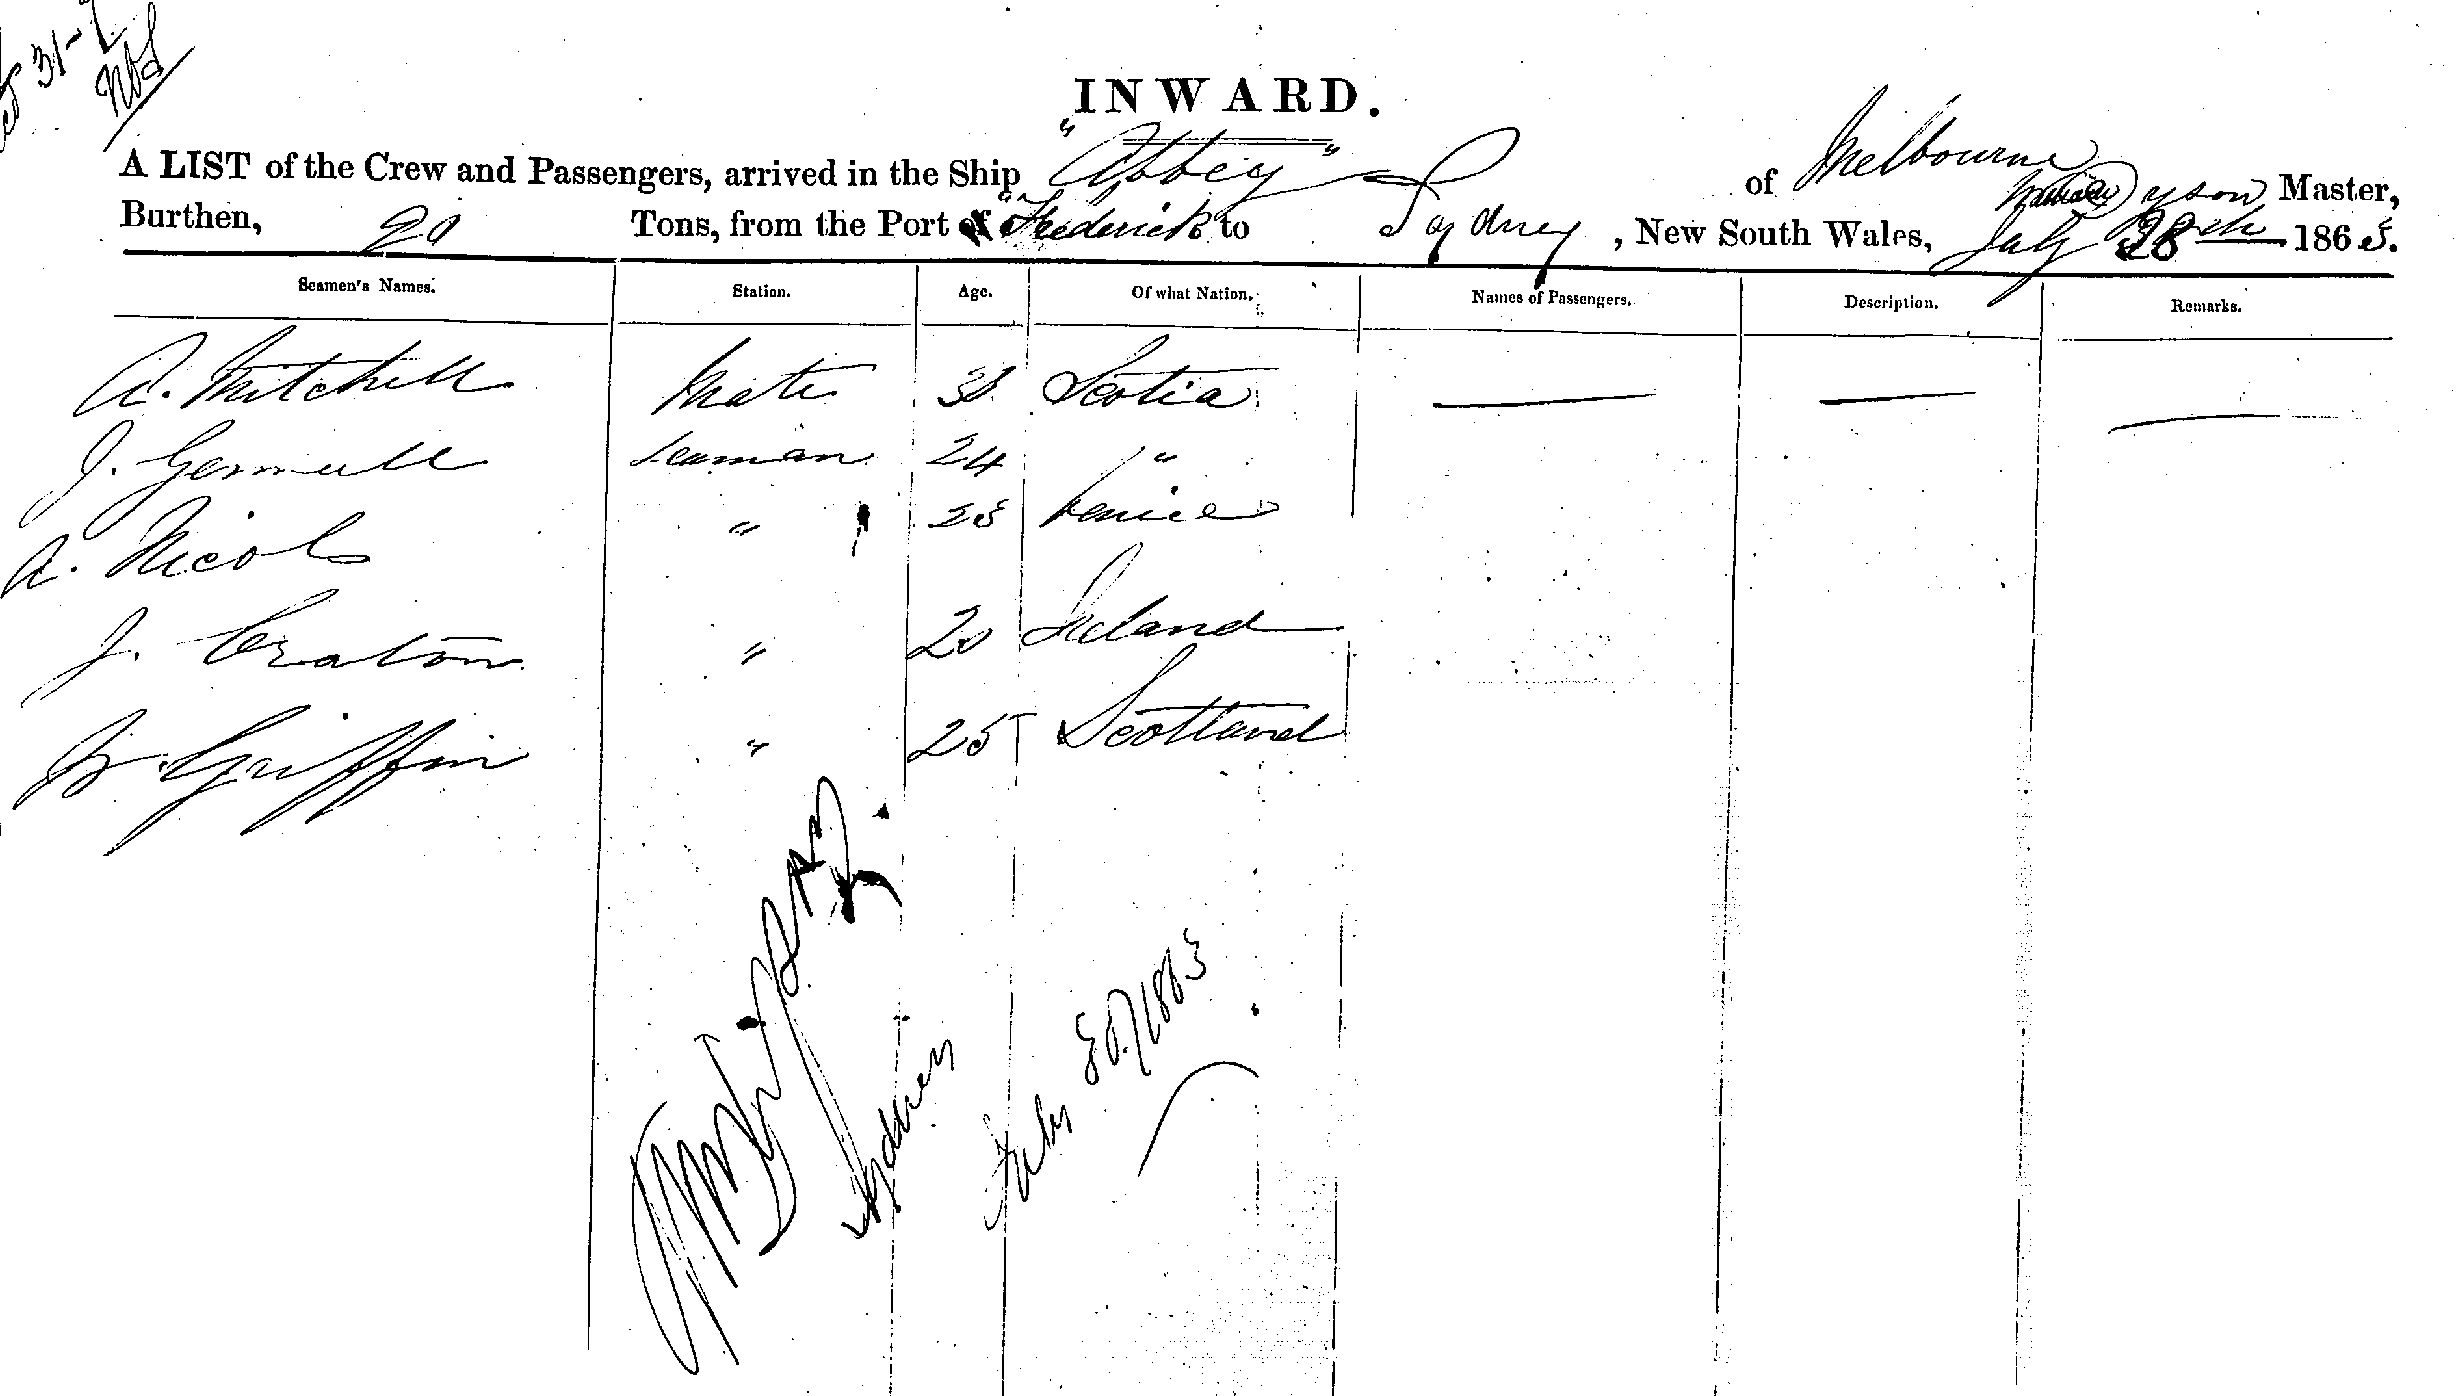 31-7
INWARD.
A LIST of the Crew and Passengers, arrived in the Ship "Abbey" of Melbourne
Dyson Master,
Burthen, Tons, from the Port Frederick to Sydney, New South Wales, July 28th 1865.
Seamen's Names. Station. Age. Of what Nation. Names of Passengers. Description. Remarks.
A. Mitchell Mate Scotia
J. Gemmell Seaman 24 "
A. Nicol " 25 Venice
J. Craton " 20 Ireland
W. Griffin " 25 Scotland
Sydney
July 30/1865